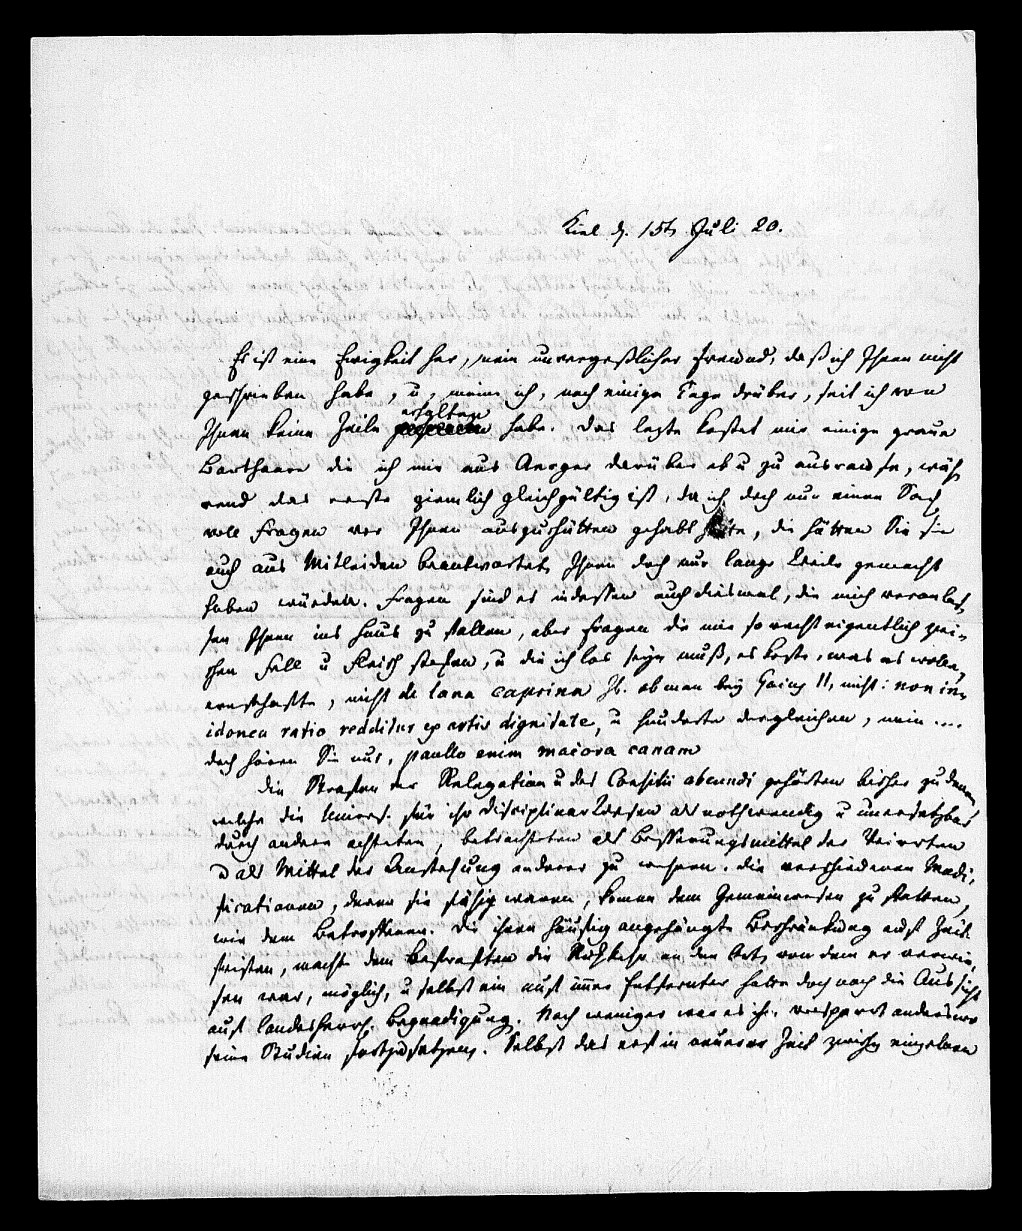 Kiel d. 15t Juli 20.
Es ist eine Ewigkeit her, mein unvergeßlicher Freund, daß ich Ihnen nicht
geschrieben habe, u, meine ich, noch einige Tage drüber, seit ich von
Ihnen keine Zeile erhalten habe. Das lezte kostet mir einige graue
Barthaare die ich mir aus Aerger darüber ab u zu ausraufe, wäh
rend das erste ziemlich gleichgültig ist, da ich doch nur einen Sack
voll Fragen vor Ihnen auszuschütten gehabt hätte, die hätten Sie sie
auch aus Mitleiden beantwortet, Ihnen doch nur lange Weile gemacht
haben würden. Fragen sind es indessen auch diesmal, die mich veranlas,
sen Ihnen ins Haus zu fallen, aber Fragen die mir so recht eigentlich zwi,
schen Fell u Fleisch stehen, u die ich los seyn muß, es koste, was es wolle,
ernsthafte, nicht de lana caprina Zb. ob man bey Gaius II, nicht: non in,
idonea ratio redditur ex artis dignitate, u hunderte dergleichen, nein ....
doch hören Sie nur, paullo enim maiora canam
Die Strafen der Relegation u des Consilii abeundi gehörten bisher zu denen,
welche die Univers. für ihr Disciplinarwesen als nothwendig u unersetzbar
durch andere achteten, betrachteten als Besserungsmittel der Verirrten
u als Mittel der Ansteckung anderer zu wehren. Die verschiedenen Modi,
ficationen, deren sie fähig waren, kamen dem Gemeinwesen zu statten,
wie dem Betroffenen. Die ihnen häufig angehängte Beschränkung auf Zeit,
fristen, machte dem Bestraften die Rückkehr an den Ort, von dem er verwie,
sen war, möglich, u selbst ein auf imer Entfernter hatte doch noch die Aussicht
auf landesherrl. Begnadigung. Noch weniger war es ihm versperrt anderswo
seine Studien fortzusetzen. Selbst das erst in neuerer Zeit zwischen einzelnen